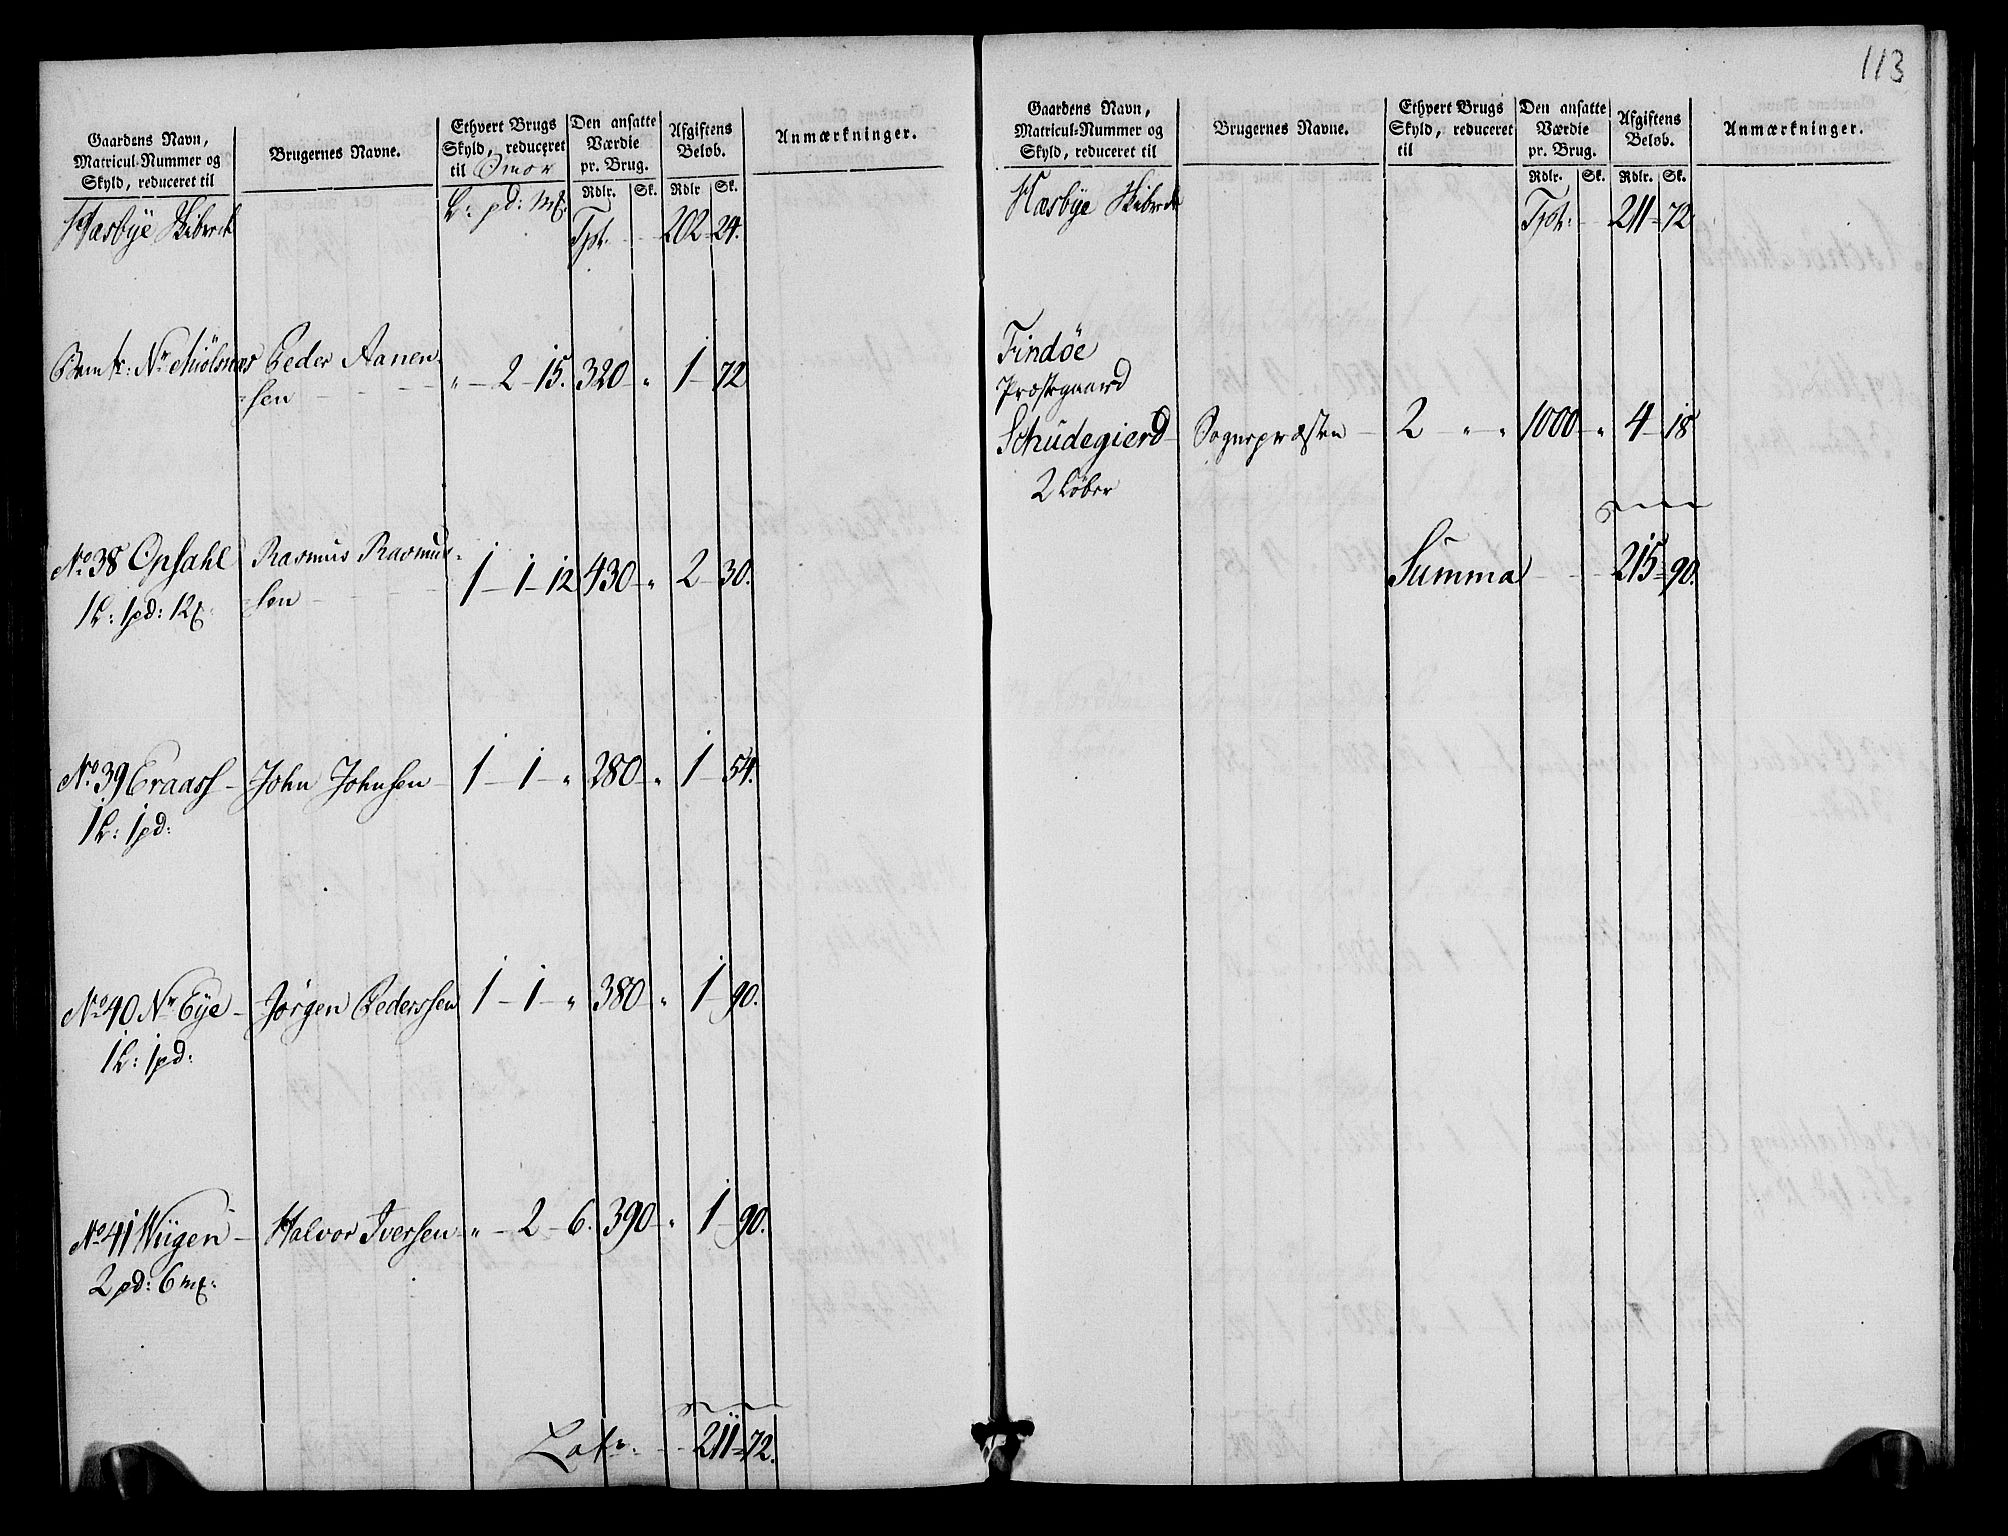 Gaardens Navn,
Matricul-Nummer og
Skyld, reduceret til
Brugernes Navne.
Ethvert Brugs
Skyld, reduceret
til Smør
Den ansatte
Værdie
pr. Brug.
Rdlr. Sk.
Afgiftens
Beløb.
Rdlr Sk.
Anmærkninger.
Hæsbye Skibrede L: pd: mk: Tpt. 202-24.
Nr Miölsnæs Peder Aanen- " - 2 - 15. 320 " 1 - 72
sen
No 38 Opsahl Rasmus Rasmus- 1 - 1 - 12 430 - " 2 - 30.
1 L: 1 pd: 12
sen
No 39 Eraass - John Johnsen - 1 - 1 - " 280 - " 1 - 54.
1 L: 1 pd:
No 40 Nr Eye - Jørgen Pederssen 1 - 1 - " 380 " 1 - 90.
1 L: 1 pd:
No 41 Wiigen - Halvor Iversen - " - 2 - 6. 390 - " 1 - 90.
2 pd: 6 mk:
Lat: - - 211 = 72.
113
Gaardens Navn,
Matricul-Nummer og
Skyld, reduceret til
Brugernes Navne.
Ethvert Brugs
Skyld, reduceret
til
Den ansatte
Værdie
pr. Brug.
Rdlr. Sk.
Afgiftens
Beløb.
Rdlr. Sk.
Anmærkninger.
Hæsbye Skibrede Tpt: - - 211 = 72.
Findöe
Præstegaard
Schudegierd - Sognepræsten - 2 " - " 1000 - " 4 - 18
2 Løber
Summa - - 215 = 90.